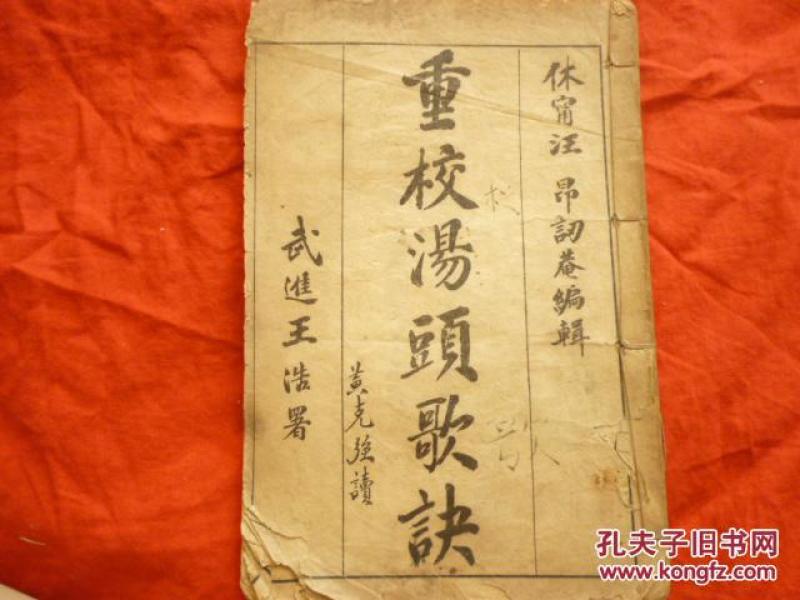 休甯汪 昂訒菴編輯
重校湯頭歌訣
校
歌
黃克強讀
武進王浩署
孔夫子旧书网
www.kongfz.com